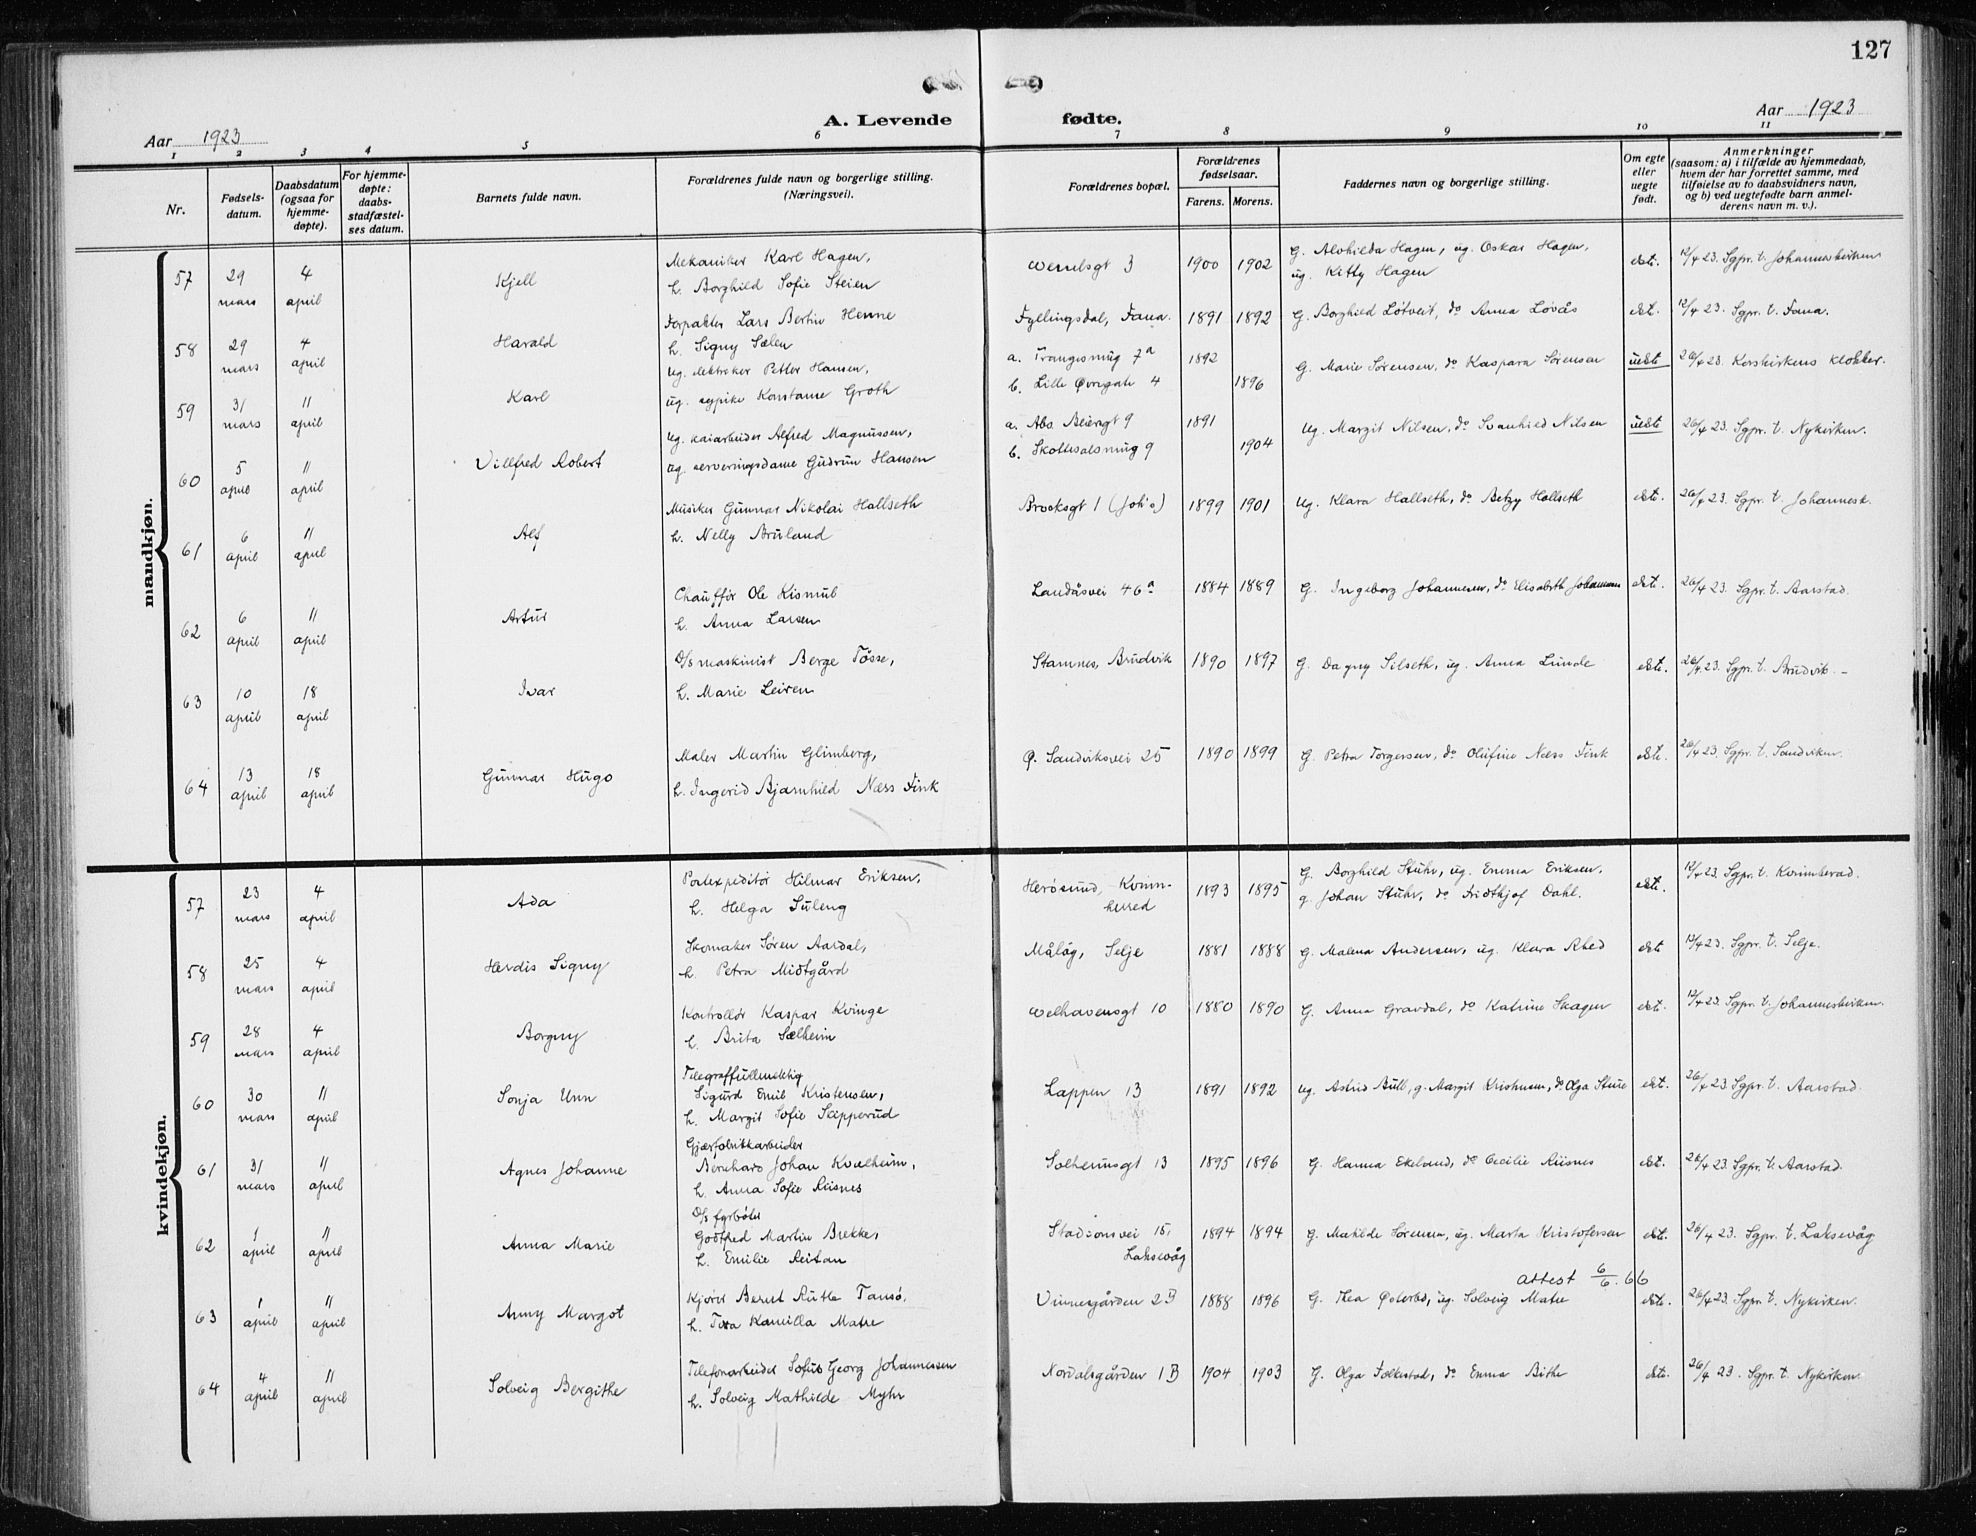 127
Aar 1923
A. Levende fødte.
Aar 1923
1 2 3 4 5 6 7 8 9 10 11
Nr.
Fødsels-
datum.
Daabsdatum
(ogsaa for
hjemme-
døpte).
For hjemme-
døpte:
daabs-
stadfæstel-
ses datum.
Barnets fulde navn.
Forældrenes fulde navn og borgerlige stilling.
(Næringsvei).
Forældrenes bopæl.
Forældrenes
fødselsaar.
Farens. Morens.
Faddernes navn og borgerlige stilling.
Om egte
eller
uegte
født.
Anmerkninger
(saasom: a) i tilfælde av hjemmedaab,
hvem der har forrettet samme, med
tilføielse av to daabsvidners navn,
og b) ved uegtefødte barn anmel-
derens navn m. v.).
mandkjøn.
57 29 mars 4 april Kjell
Mekaniker Karl Hagen,
h. Borghild Sofie Steien
Wesselsgt 3 1900 1902
G. Alvhilda Hagen, ug. Oskar Hagen,
ug. Kitty Hagen
ekte. 12/4 23. Sgpr. t. Johanneskirken
58 29 mars 4 april Harald
Forpakter Lars Bertin Henne
h. Signy Sælen
Fyllingsdal, Fana. 1891 1892
G. Borghild Løtveit, do Anna Løvås
ekte. 12/4 23. Sgpr. t. Fana.
59 31 mars 11 april Karl
ug. elektriker Petter Hansen,
ug. sypike Konstanse Groth
a. Trangesmug 7a 1892
b. Lille Øvregate 4 1896
G. Marie Sørensen, do Kaspara Sørensen
uekte 26/4 23. Korskirkens klokker.
60 5 april 11 april Villfred Robert
ug. kaiarbeider Alfred Magnussen,
ug. serveringsdame Gudrun Hansen
a. Abs. Beiersgt 9 1891
b. Skottesalsmug 9 1904
ug. Margit Nilsen, do Svanhild Nilsen
uekte 26/4 23. Sgpr. t. Nykirken.
61 6 april 11 april Alf
Musiker Gunnar Nikolai Hallseth
h. Nelly Bruland
Brocksgt 1 (Joh's) 1899 1901
ug. Klara Hallseth, do Betzy Hallseth
ekte. 26/4 23. Sgpr. t. Johannesk.
62 6 april 11 april Artur
Chauffør Ole Kismul
h. Anna Larsen
Landåsvei 46a 1884 1889
G. Ingeborg Johannesen, do Elisabeth Johannesen
ekte. 26/4 23. Sgpr. t. Aarstad.
63 10 april 18 april Ivar
D/s maskinist Berge Tøsse,
h. Marie Leiren
Stamnes, Brudvik 1890 1897
G. Dagny Silseth, ug. Anna Lunde
ekte. 26/4 23. Sgpr. t. Brudvik. –
64 13 april 18 april Gunnar Hugo
Maler Martin Glimberg,
h. Ingerid Bjarnhild Næss Fink
Ø. Sandviksvei 25 1890 1899
G. Petra Torgersen, do Olufine Næss Fink
ekte. 26/4 23. Sgpr. t. Sandviken.
kvindekjøn.
57 23 mars 4 april Ada
Postexpeditør Hilmar Eriksen,
h. Helga Suleng
Herøsund, Kvinn-
herred 1893 1895
G. Borghild Stuhr, ug. Emma Eriksen,
g. Johan Stuhr, do Fridtkjof Dahl.
ekte. 12/4 23. Sgpr. t. Kvinnherad.
58 25 mars 4 april Herdis Signy
Skomaker Søren Aardal,
h. Petra Midtgård
Måløy, Selje 1881 1888
G. Malena Andersen, ug. Klara Abed
ekte 12/4 23. Sgpr. t. Selje.
59 28 mars 4 april Borgny
Kontrollør Kaspar Kvinge
h. Brita Sælheim
Welhavensgt 10 1880 1890
G. Anna Gravdal, do Katrine Skagen
ekte. 12/4 23. Sgpr. t. Johanneskirken.
60 30 mars 11 april Sonja Unn
Telegraffullmektig
Sigurd Emil Kristensen,
h. Margit Sofie Skipperud
Lappen 13 1891 1892
ug. Astrid Bull, g. Margit Kristensen, do Olga Sture
ekt. 26/4 23 Sgpr. t. Aarstad.
61 31 mars 11 april Agnes Johanne
Gjærfabrikkarbeider
Bernhard Johan Kvalheim,
h. Anna Sofie Risnes
Solheimsgt 13 1895 1896
G. Hanna Ekeland, do Cecilie Risnes
ekt. 26/4 23. Sgpr. t. Aarstad.
62 1 april 11 april Anna Marie
D/s fyrbøter
Godtfred Martin Brekke,
h. Emilie Reitan
Stadionsvei 15,
Laksevåg 1894 1894
G. Mathilde Sørensen, ug. Marta Kristofersen
ekt. 26/4 23. Sgpr. t. Laksevåg
attest 6/6.66
63 1 april 11 april Anny Margot
Kjører Bernt Rutle Tansø,
h. Tora Kamilla Matre
Vinnesgården 2B 1888 1896
G. Thea Østerbø, ug. Solveig Matre
ekte. 26/4 23. Sgpr. t. Nykirken.
64 4 april 11 april Solveig Bergithe
Telefonarbeider Sofus Georg Johannessen
h. Solveig Mathilde Myhr
Nordalsgården 1B 1904 1903
G. Olga Folkestad, do Emma Bithe
ekte. 26/4 23. Sgpr. t. Nykirken.